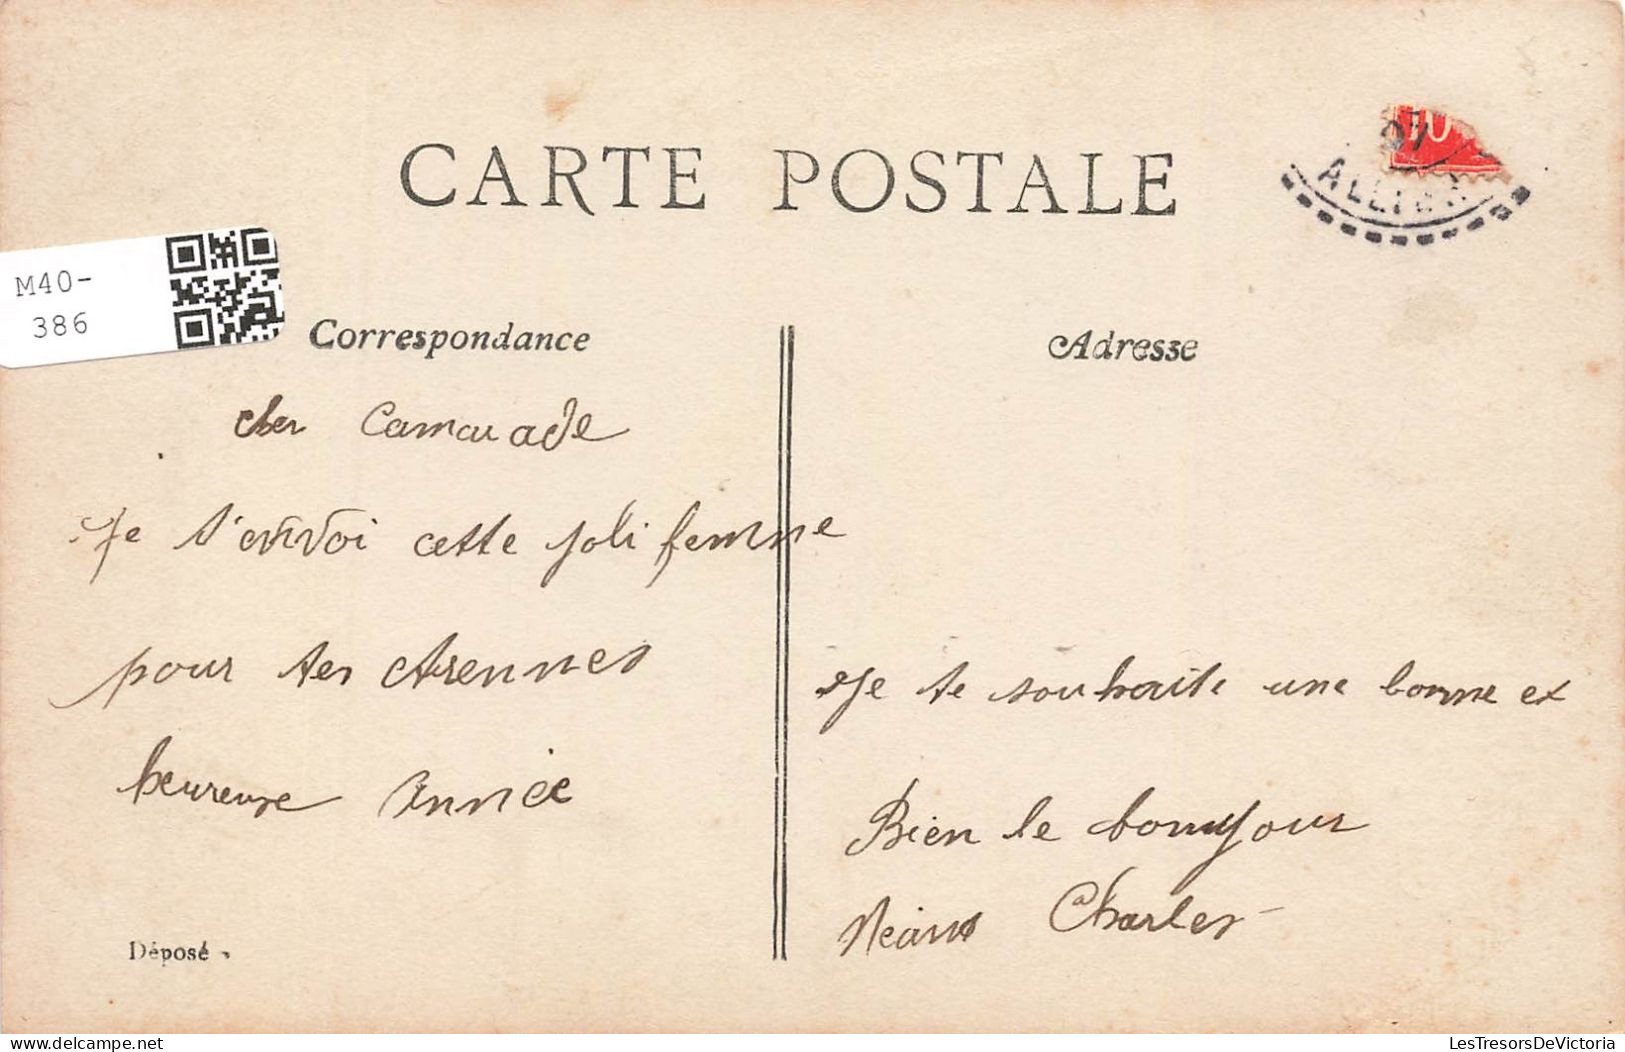 CARTE POSTALE
10
07
ALLIER
M40-
386
Correspondance
Adresse
cher Camarade
Je t'envoi cette joli femme
pour tes étrennes
heureuse Année
Je te souhaite une bonne et
Bien le bonjour
Charles
Déposé
delcampe.net
LesTresorsDeVictoria